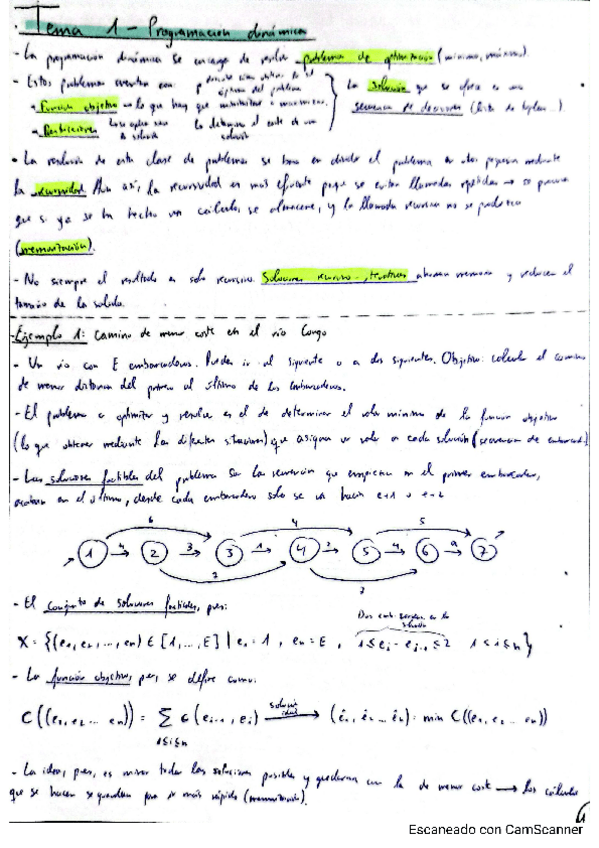 Tema 1 - Programación dinámica
- La programación dinámica se encarga de resolver problemas de optimización (mínimo, máximo).
- Estos problemas cuentan con:
La solución que se ofrece es una
Función objetivo → lo que hay que maximizar o minimizar.
secuencia de decisiones
Restricciones
- La resolución de esta clase de problemas se basa en dividir el problema en otros pequeños mediante
la recursividad. Aun así, la recursividad es más eficiente porque se evitan llamadas repetidas → se procura
que si ya se ha hecho un cálculo, se almacene, y la llamada recursiva no se produzca
(memorización).
- No siempre el resultado es solo recursivo. Soluciones recursivo-iterativas ahorran memoria y reducen el
tamaño de la salida.
Ejemplo 1: Camino de menor coste en el río Congo
- Un río con E embarcaderos. Puedes ir al siguiente o a dos siguientes. Objetivo: calcular el camino
de menor distancia del primero al último de los embarcaderos.
- El problema a optimizar y resolver es el de determinar el valor mínimo de la función objetivo
(lo que obtener mediante las diferentes situaciones) que asigna un valor a cada solución (secuencia de embarcad.)
- Las soluciones factibles del problema son las secuencias que empiezan en el primer embarcadero,
acaban en el último, desde cada embarcadero solo se va hacia e+1 o e+2
6 4 5
1 4 2 3 3 1 4 2 5 4 6 9 7
7 7
- El conjunto de soluciones factibles, pues:
X = {(e₁, e₂, ..., en) ∈ [1, ..., E] | e₁ = 1, en = E, 1 ≤ ei - ei-1 ≤ 2 1 ≤ i ≤ n}
- La función objetivo, pues, se define como:
C((e₁, e₂ ... en)) = ∑ c(ei-1, ei) → (ê₁, ê₂ ... ên): min C((e₁, e₂ ... en))
1≤i≤n
- La idea, pues, es mirar todas las soluciones posibles y quedarnos con la de menor coste → los cálculos
que se hacen se guardan para ir más rápido (memorización).
1
Escaneado con CamScanner